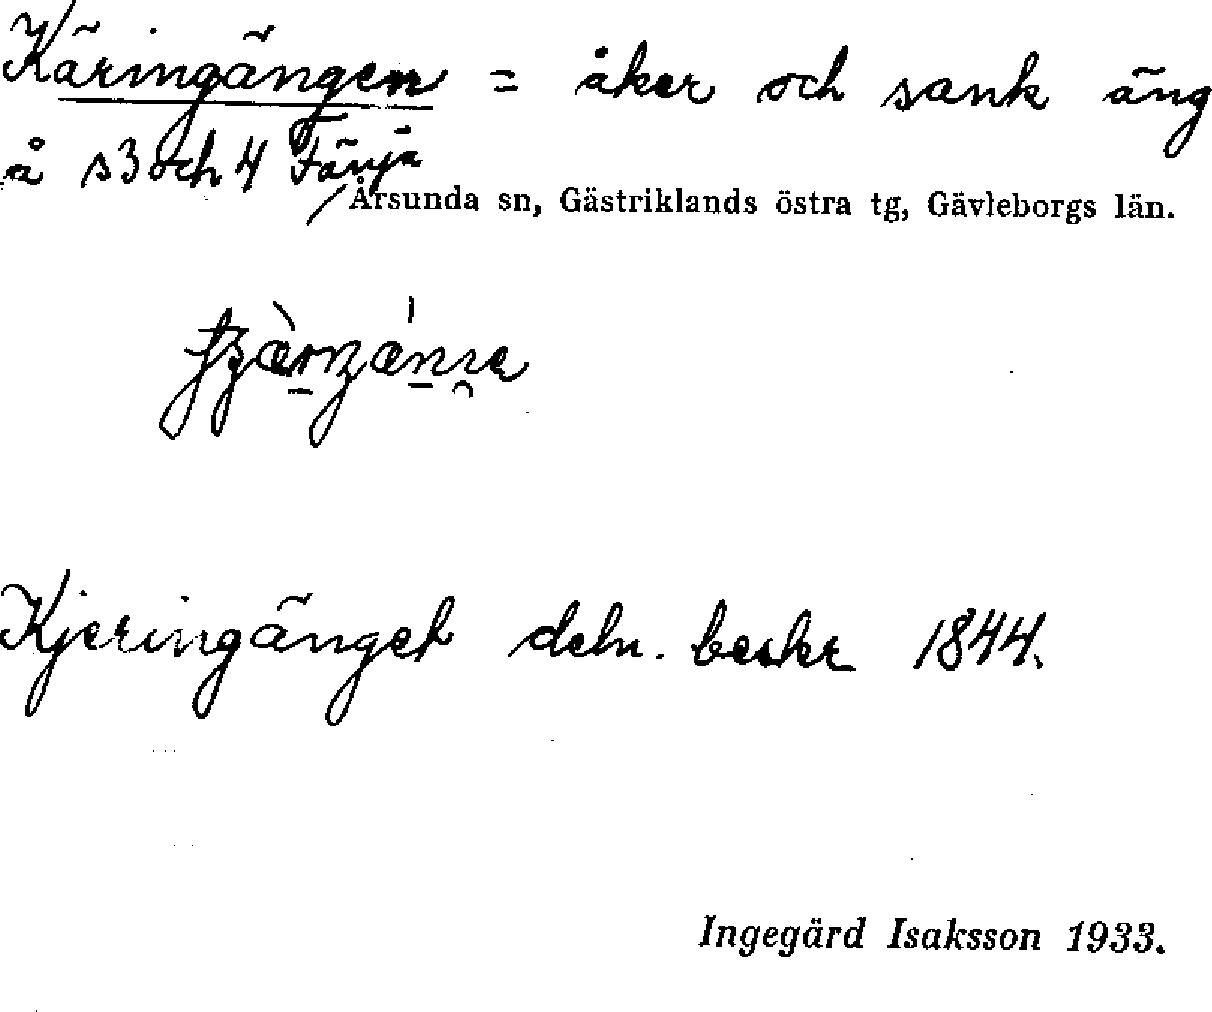 Käringängen = åker och sank äng
å s3 och 4 Färja
Årsunda sn, Gästriklands östra tg, Gävleborgs län.
Kjeringänget deln. beskr 1844.
Ingegärd Isaksson 1933.